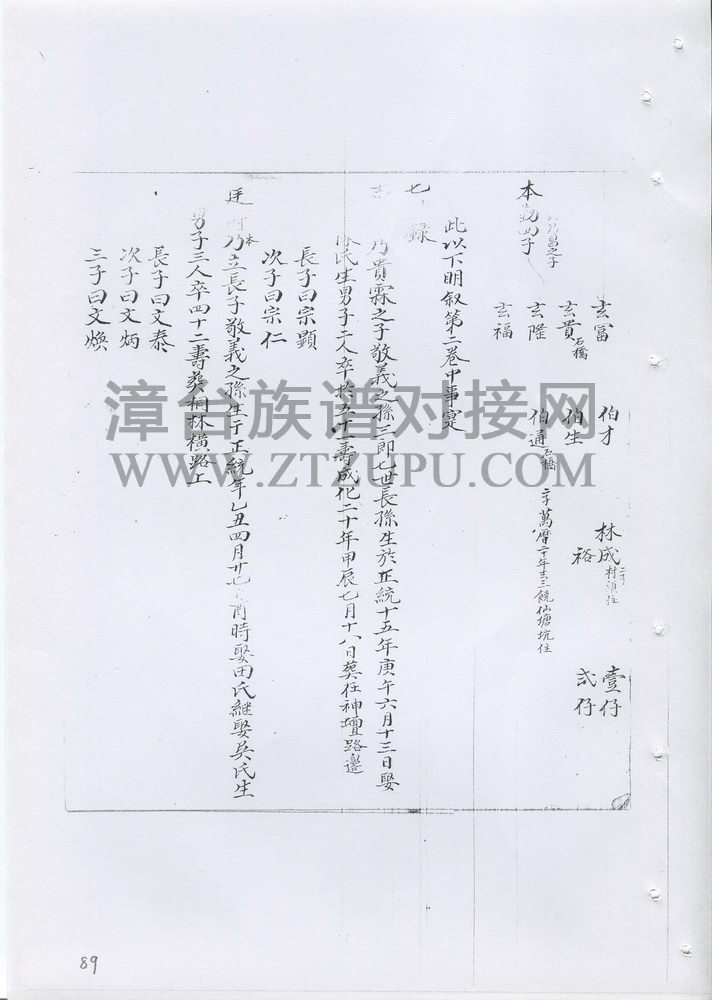 玄富 伯才 林成 村頂住 壹仔
裕 貳仔
玄貴 石橋 伯生
玄隆 伯通 石橋 二子萬曆二十年去三饒仙塘坑住
玄福
本 四子 昌之子
此以下明叙第二卷中事寔
七 錄
乃貴霖之子敬義之孫三郎七世長孫生於正統十五年庚午六月十三日娶
氏生男子二人卒於五十一壽成化二十年甲辰七月十八日葬在神壇路邊
長子曰宗顯
次子曰宗仁
廷 乃本立長子敬義之孫生于正統年乙丑四月廿七 酉時娶田氏継娶吳氏生
男子三人卒四十二壽葬桐林橫路上
長子曰文泰
次子曰文炳
三子曰文煥
漳台族谱对接网
WWW.ZTZUPU.COM
89